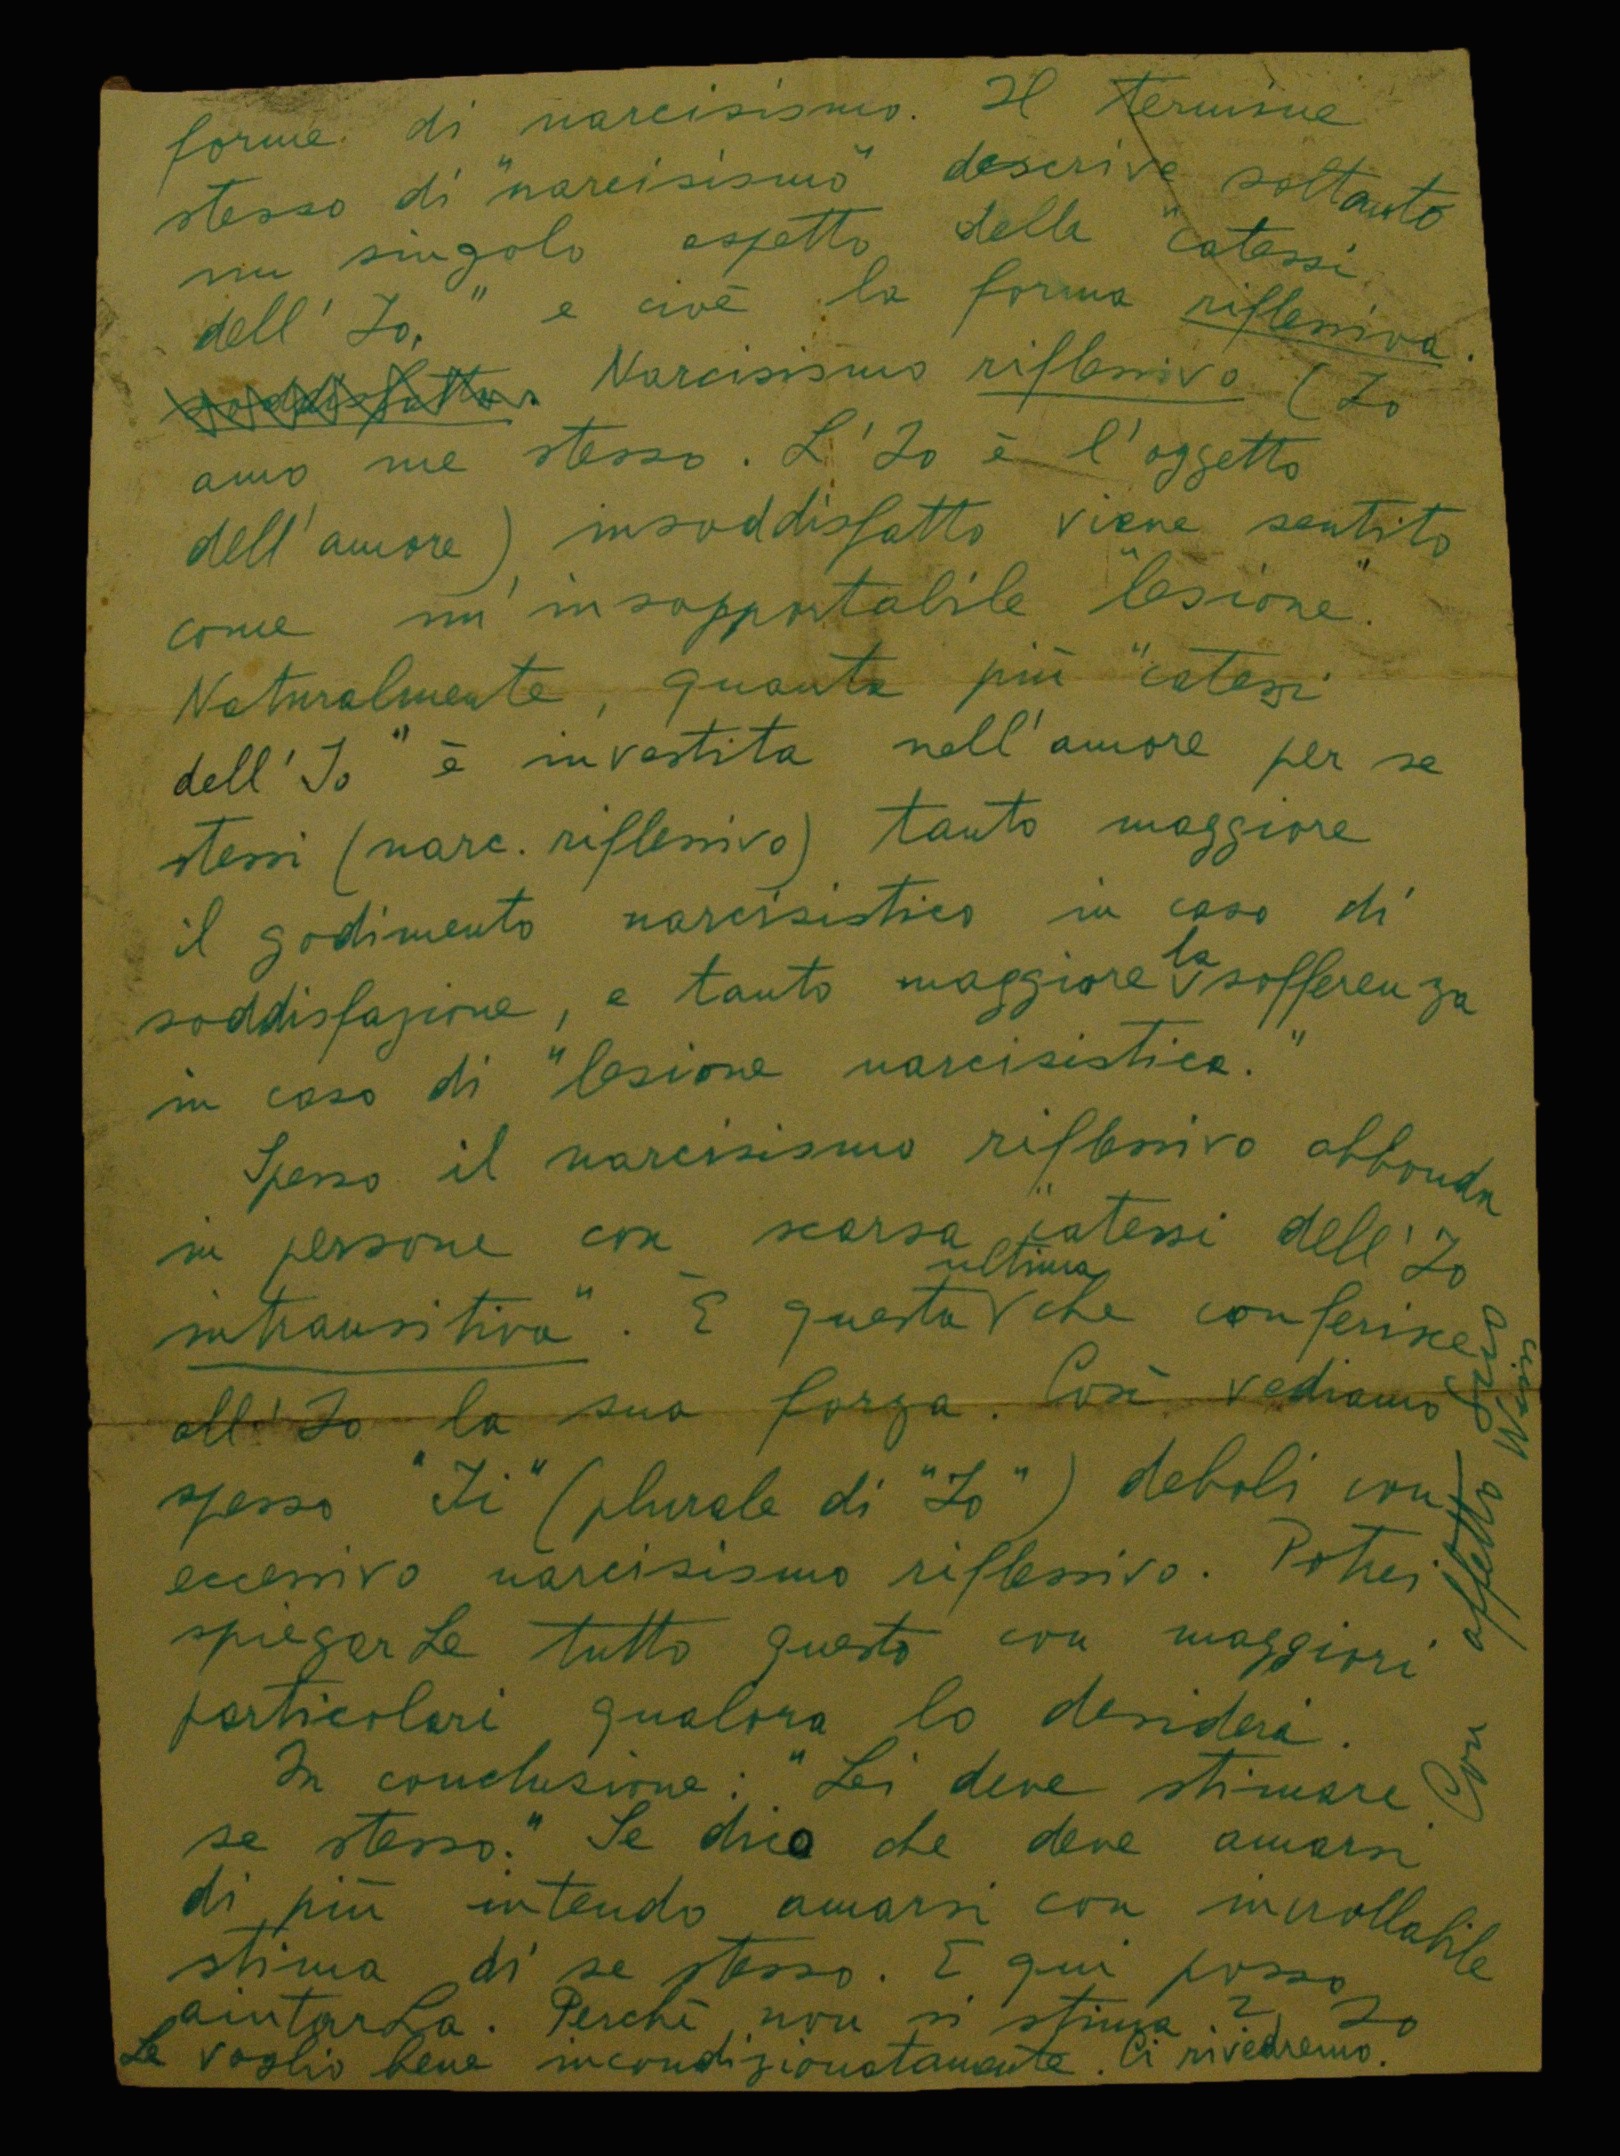 forme di narcisismo. Il termine
stesso di "narcisismo" descrive soltanto
un singolo aspetto della "catessi
dell' Io," e cioè la forma riflessiva.
soddisfatto. Narcisismo riflessivo (Io
amo me stesso. L'Io è l'oggetto
dell'amore), insoddisfatto viene sentito
come un'insopportabile "lesione".
Naturalmente, quanta più "catessi
dell'Io" è investita nell'amore per se
stessi (narc. riflessivo) tanto maggiore
il godimento narcisistico in caso di
soddisfazione, e tanto maggiore la sofferenza
in caso di "lesione narcisistica."
Spesso il narcisismo riflessivo abbonda
in persone con scarsa "catessi dell'Io
intransitiva". È questa ultima che conferisce
all'Io la sua forza. Così vediamo
spesso "Ii" (plurale di "Io") deboli con
eccessivo narcisismo riflessivo. Potrei
spiegarLe tutto questo con maggiori
particolari qualora lo desideri.
In conclusione: "Lei deve stimare
se stesso." Se dico che deve amarsi
di più intendo amarsi con incrollabile
stima di se stesso. E qui posso
aiutarLa. Perchè non si stima? Io
Le voglio bene incondizionatamente. Ci rivedremo.
Con affetto Suo
Weiss